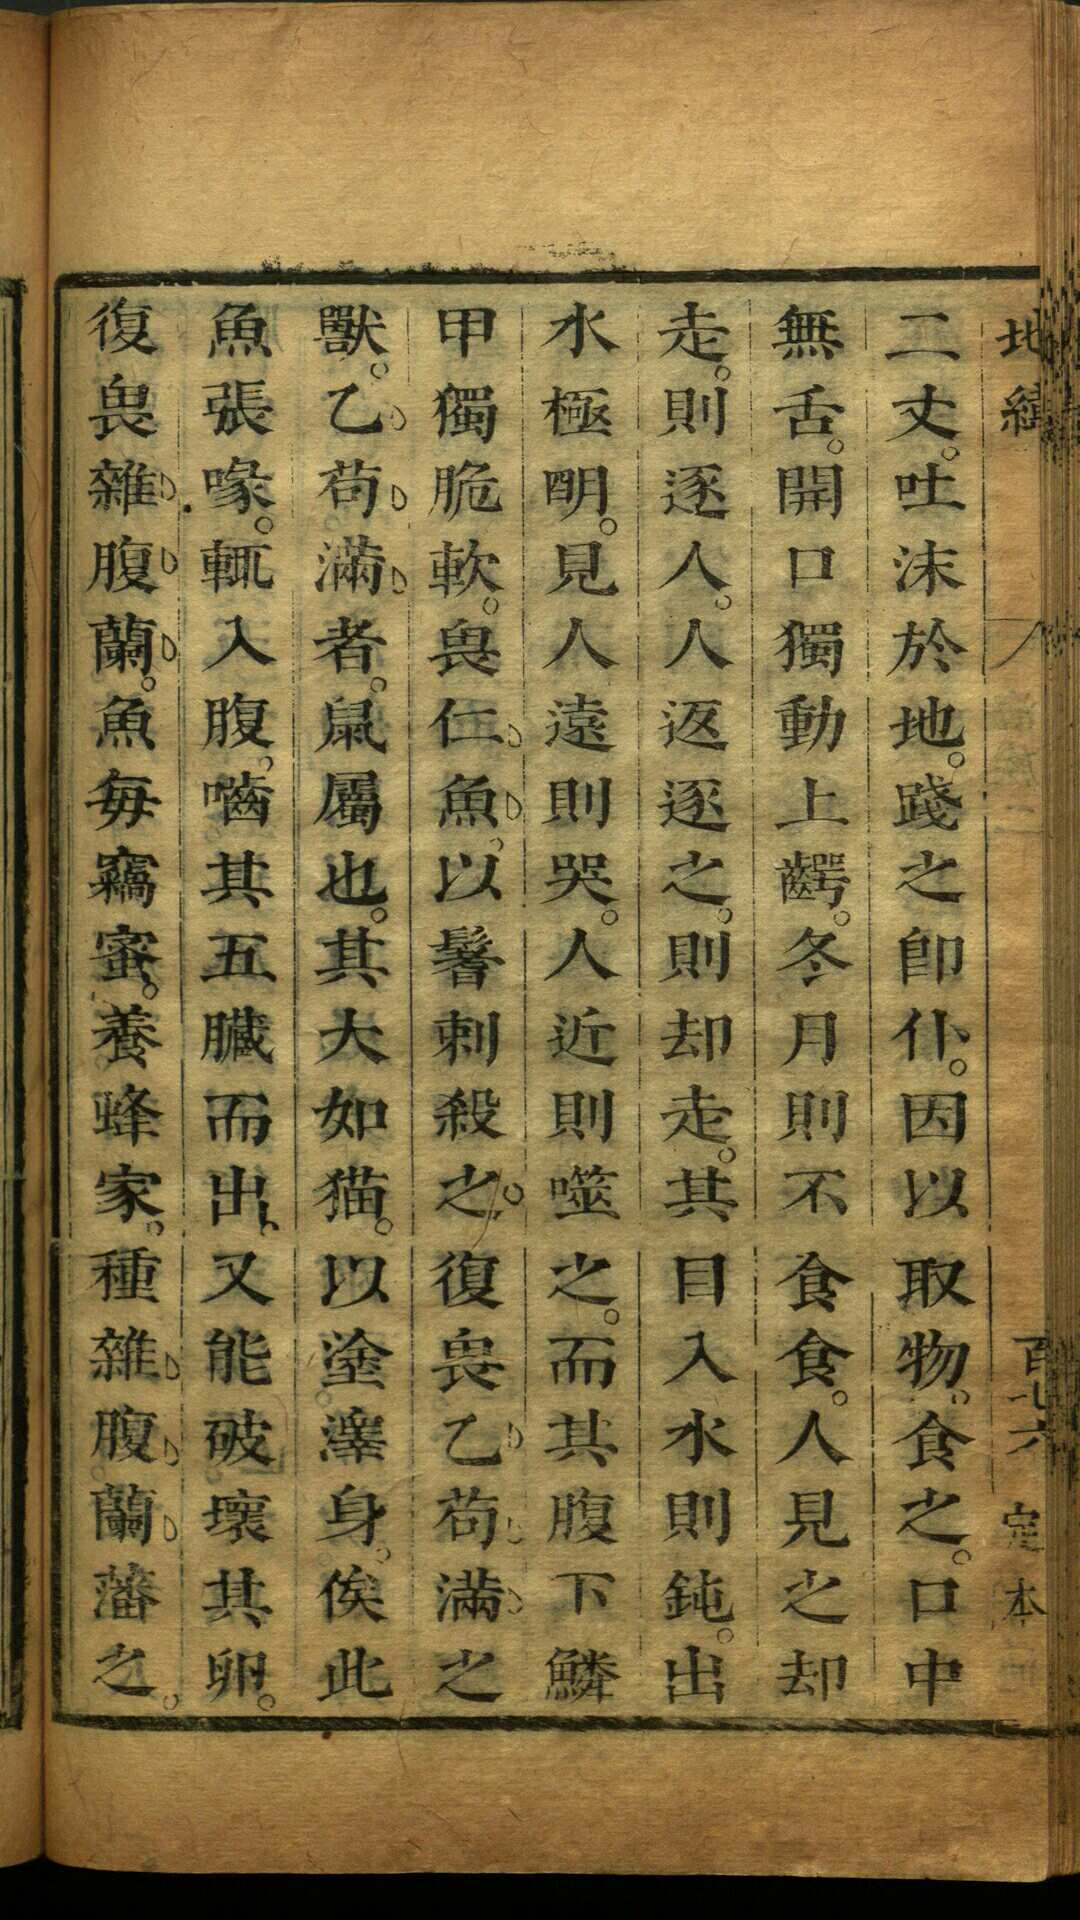 地緯
百七六
定本
二丈。吐沫於地。踐之卽仆。因以取物。食之。口中
無舌。開口獨動上齶。冬月則不食食。人見之却
走。則逐人。人返逐之。則却走。其目入水則鈍。出
水極明。見人遠則哭。人近則噬之。而其腹下鱗
甲獨脆軟。畏仁魚。以鬐刺殺之。復畏乙苟滿之
獸。乙苟滿者。鼠屬也。其大如猫。以塗澤身。俟此
魚張喙。輒入腹。嚙其五臟而出、又能破壞其卵。
復畏雜腹蘭。魚每竊蜜。養蜂家。種雜腹蘭藩之。